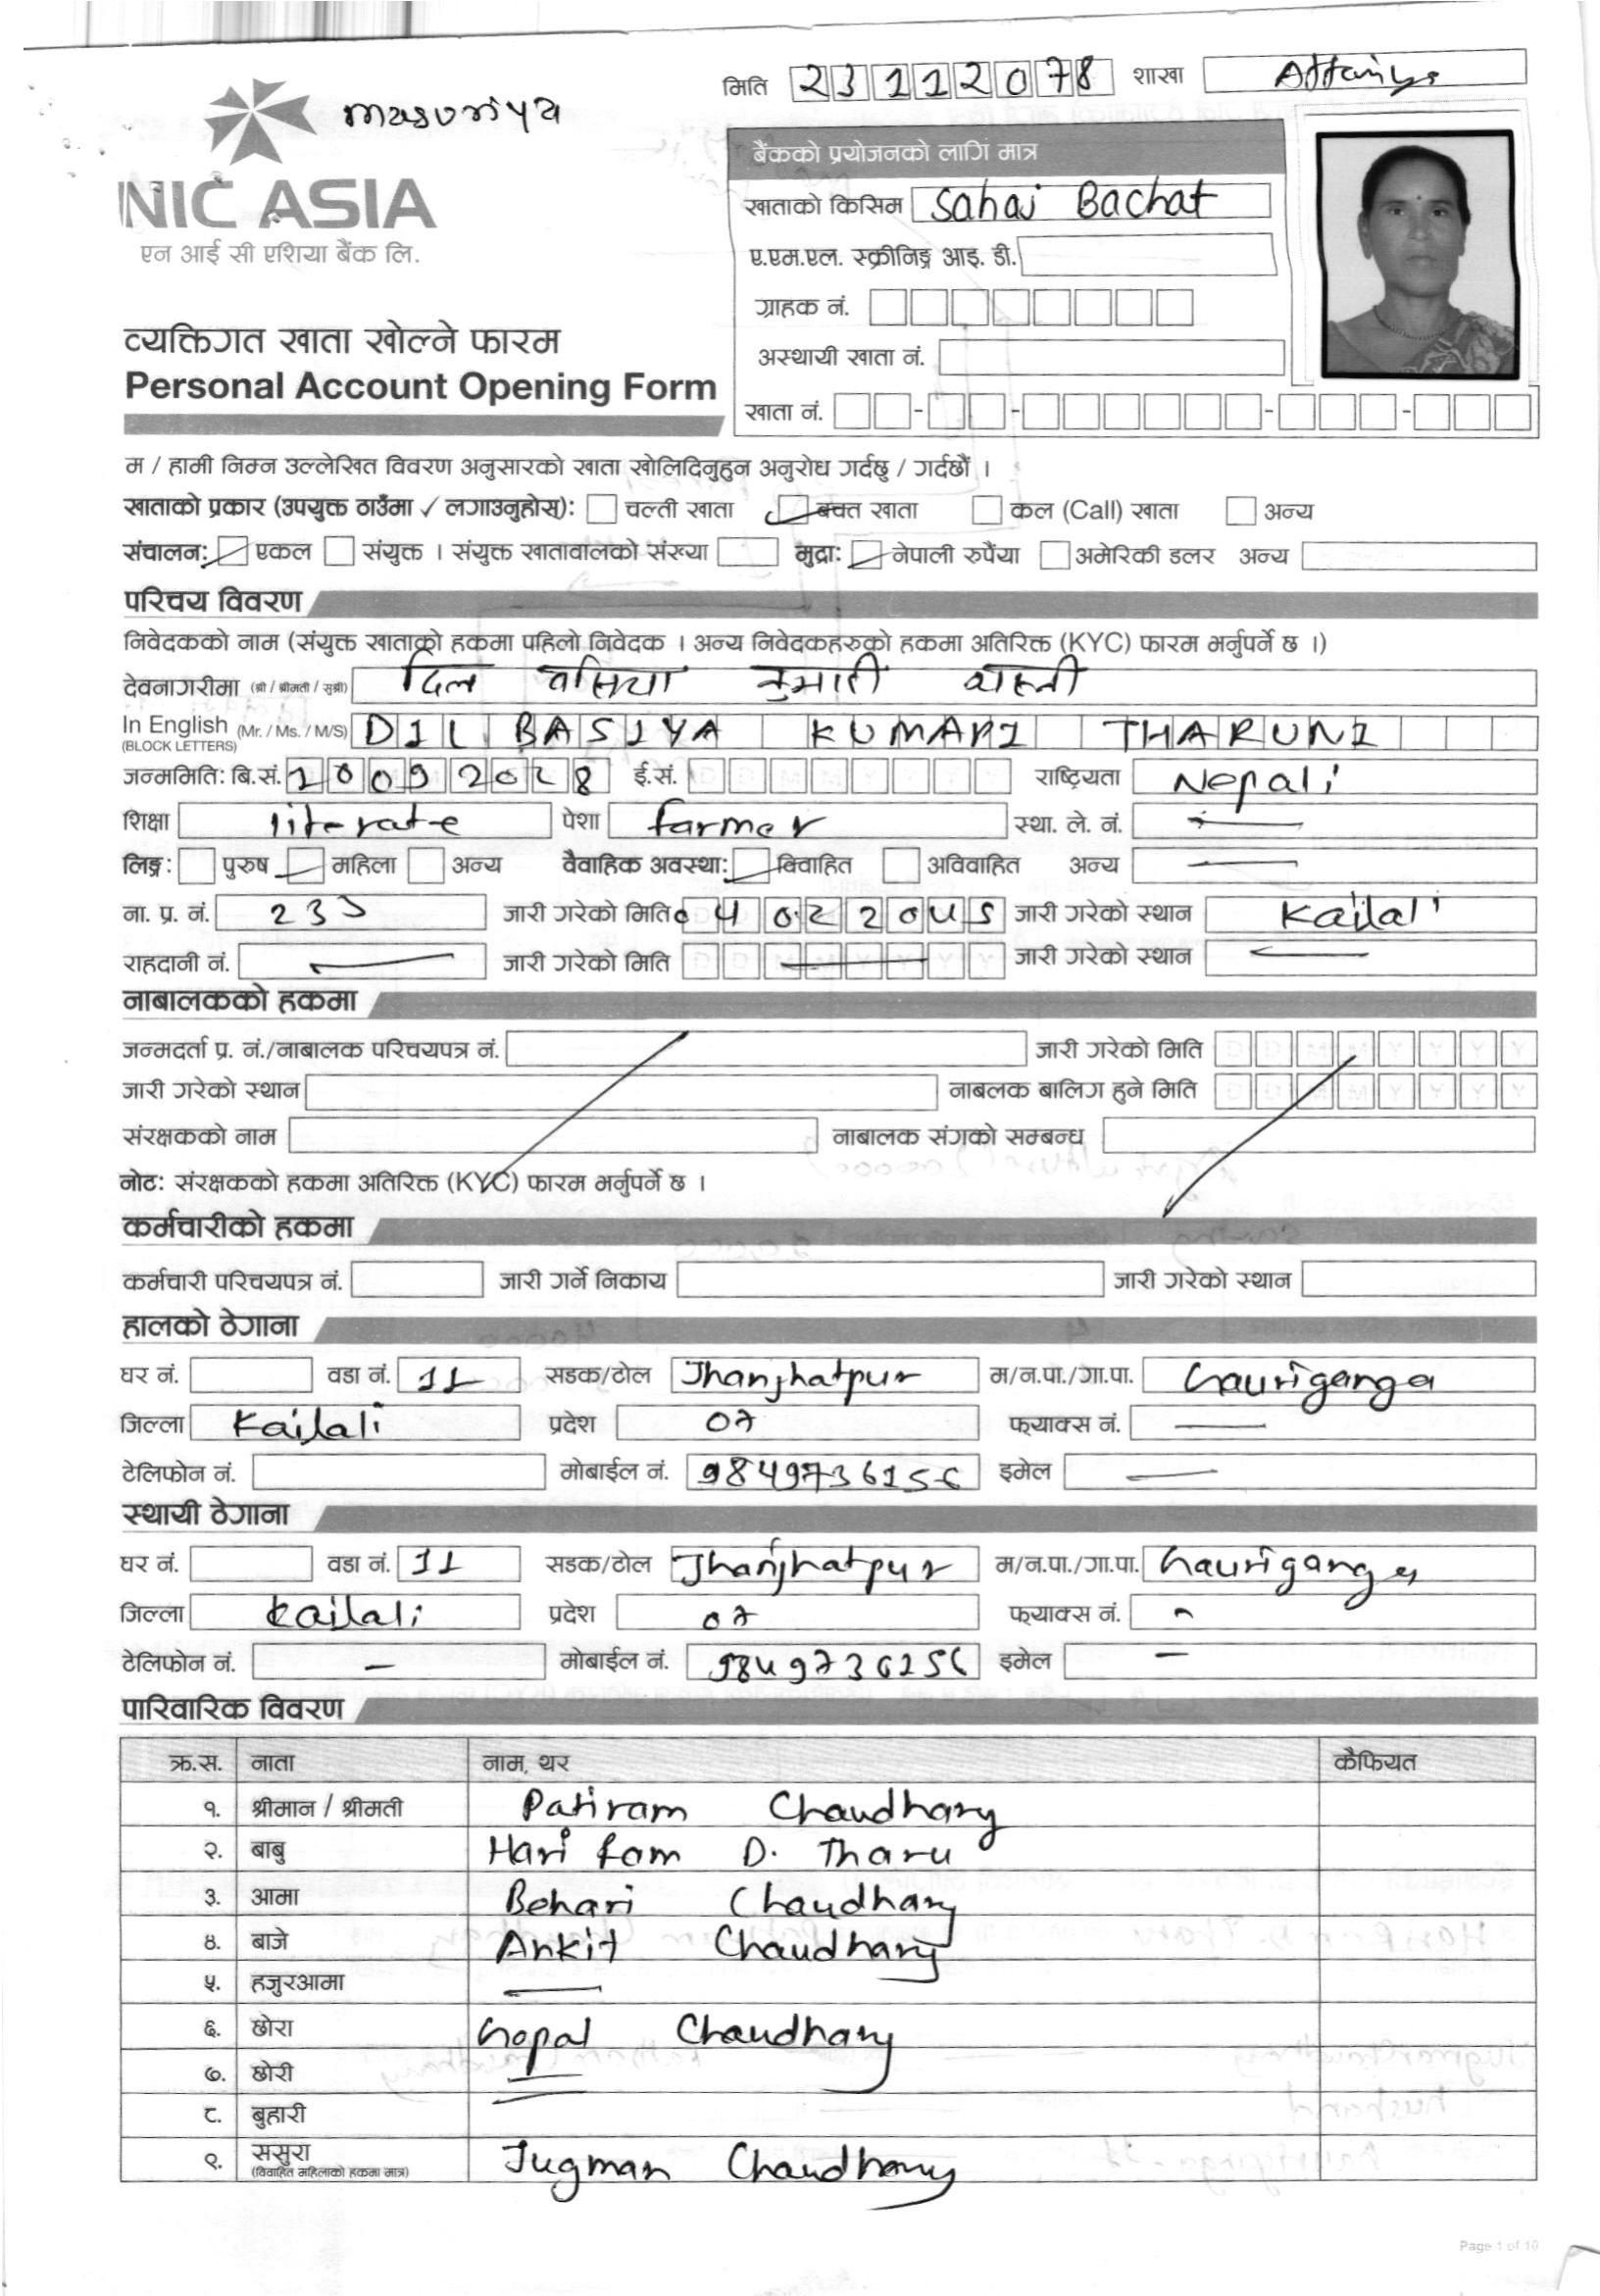 masuriya
मिति 23122078 शाखा Attariya
NIC ASIA
एन आई सी एशिया बैंक लि.
बैंकको प्रयोजनको लागि मात्र
खाताको किसिम Sahaj Bachat
ए.एम.एल. स्क्रीनिङ्ग आइ. डी.
ग्राहक नं.
अस्थायी खाता नं.
खाता नं. - - - -
व्यक्तिगत खाता खोल्ने फारम
Personal Account Opening Form
म / हामी निम्न उल्लेखित विवरण अनुसारको खाता खोलिदिनुहुन अनुरोध गर्दछु / गर्दछौं ।
खाताको प्रकार (उपयुक्त ठाउँमा ✓ लगाउनुहोस्): चल्ती खाता बचत खाता कल (Call) खाता अन्य
संचालन: एकल संयुक्त । संयुक्त खातावालको संख्या मुद्रा: नेपाली रुपैंया अमेरिकी डलर अन्य
परिचय विवरण
निवेदकको नाम (संयुक्त खाताको हकमा पहिलो निवेदक । अन्य निवेदकहरुको हकमा अतिरिक्त (KYC) फारम भर्नुपर्ने छ ।)
देवनागरीमा (श्री / श्रीमती / सुश्री) दिल बसिया कुमारी थारुनी
In English (Mr. / Ms. / M/S) DIL BASIYA KUMARI THARUNI
(BLOCK LETTERS)
जन्ममिति: बि.सं. 10092028 ई.सं. राष्ट्रियता Nepali
शिक्षा literate पेशा farmer स्था. ले. नं.
लिङ्ग: पुरुष महिला अन्य वैवाहिक अवस्था: विवाहित अविवाहित अन्य
ना. प्र. नं. 233 जारी गरेको मिति 04022045 जारी गरेको स्थान Kailali
राहदानी नं. जारी गरेको मिति जारी गरेको स्थान
नाबालकको हकमा
जन्मदर्ता प्र. नं./नाबालक परिचयपत्र नं. जारी गरेको मिति
जारी गरेको स्थान नाबलक बालिग हुने मिति
संरक्षकको नाम नाबालक संगको सम्बन्ध
नोट: संरक्षकको हकमा अतिरिक्त (KYC) फारम भर्नुपर्ने छ ।
कर्मचारीको हकमा
कर्मचारी परिचयपत्र नं. जारी गर्ने निकाय जारी गरेको स्थान
हालको ठेगाना
घर नं. वडा नं. 11 सडक/टोल Jhanjhatpur म/न.पा./गा.पा. Gauriganga
जिल्ला Kailali प्रदेश 07 फ्याक्स नं.
टेलिफोन नं. मोबाईल नं. 9849736156 इमेल
स्थायी ठेगाना
घर नं. वडा नं. 11 सडक/टोल Jhanjhatpur म/न.पा./गा.पा. Gauriganga
जिल्ला Kailali प्रदेश 07 फ्याक्स नं.
टेलिफोन नं. मोबाईल नं. 9849736156 इमेल
पारिवारिक विवरण
क्र.स. नाता नाम, थर कैफियत
१. श्रीमान / श्रीमती Patiram Chaudhary
२. बाबु Hari Ram D. Tharu
३. आमा Behari Chaudhary
४. बाजे Ankit Chaudhary
५. हजुरआमा
६. छोरा Gopal Chaudhary
७. छोरी
८. बुहारी
९. ससुरा Jugman Chaudhary
(विवाहित महिलाको हकमा मात्र)
Page 1 of 10